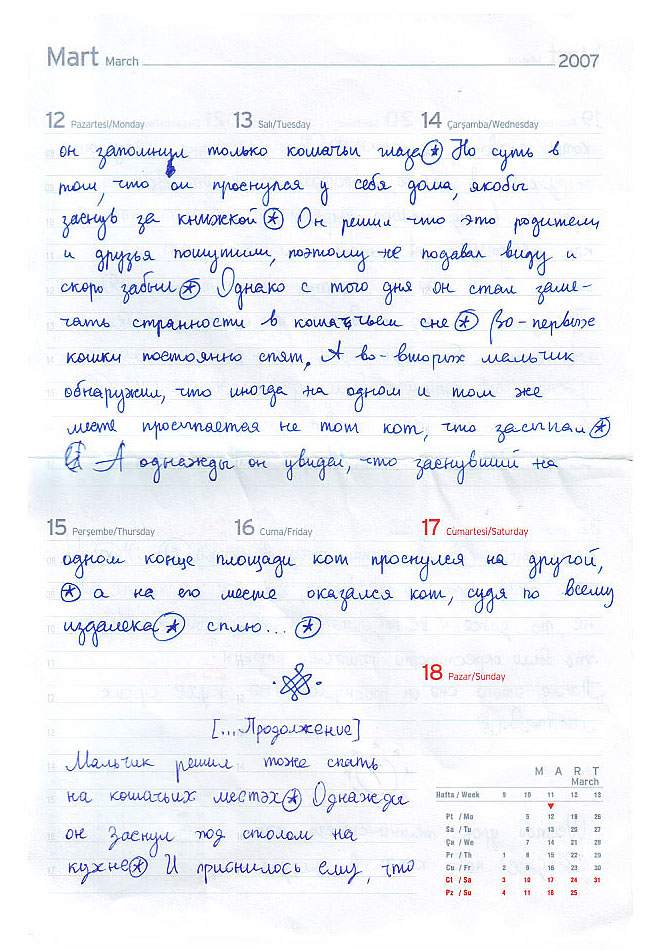 Mart March 2007
12 Pazartesi/Monday 13 Salı/Tuesday 14 Çarşamba/Wednesday
он запомнил только кошачьи глаза* Но суть в
том, что он проснулся у себя дома, якобы
заснув за книжкой* Он решил что это родители
и друзья пошутили, поэтому не подавал виду и
скоро забыл* Однако с того дня он стал заме-
чать странности в кошачьем сне* Во-первых
кошки постоянно спят. А во-вторых мальчик
обнаружил, что иногда на одном и том же
месте просыпается не тот кот, что засыпал*
А однажды он увидел, что заснувший на
15 Perşembe/Thursday 16 Cuma/Friday 17 Cumartesi/Saturday
одном конце площади кот проснулся на другой,
* а на его месте оказался кот, судя по всему
издалека* сплю... *
18 Pazar/Sunday
[...Продолжение]
Мальчик решил тоже спать
на кошачьих местах* Однажды
он заснул под столом на
кухне* И приснилось ему, что
M A R T
March
Hafta / Week 9 10 11 12 13
Pt / Mo 5 12 19 26
Sa / Tu 6 13 20 27
Ça / We 7 14 21 28
Pr / Th 1 8 15 22 29
Cu / Fr 2 9 16 23 30
Ct / Sa 3 10 17 24 31
Pz / Su 4 11 18 25